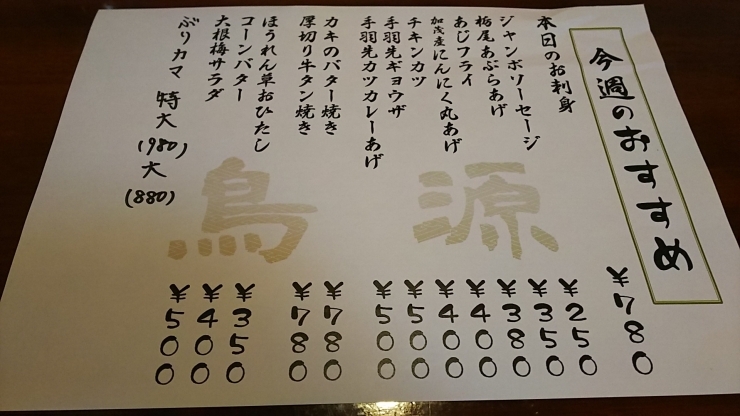 今週のおすすめ
本日のお刺身 ¥780
ジャンボソーセージ ¥250
栃尾あぶらあげ ¥350
あじフライ ¥380
加茂産にんにく丸あげ ¥400
チキンカツ ¥400
手羽先ギョウザ ¥500
手羽先カツカレーあげ ¥500
カキのバター焼き ¥780
厚切り牛タン焼き ¥780
ほうれん草おひたし ¥350
コーンバター ¥400
大根梅サラダ ¥500
ぶりカマ 特大(980) 大(880)
鳥源